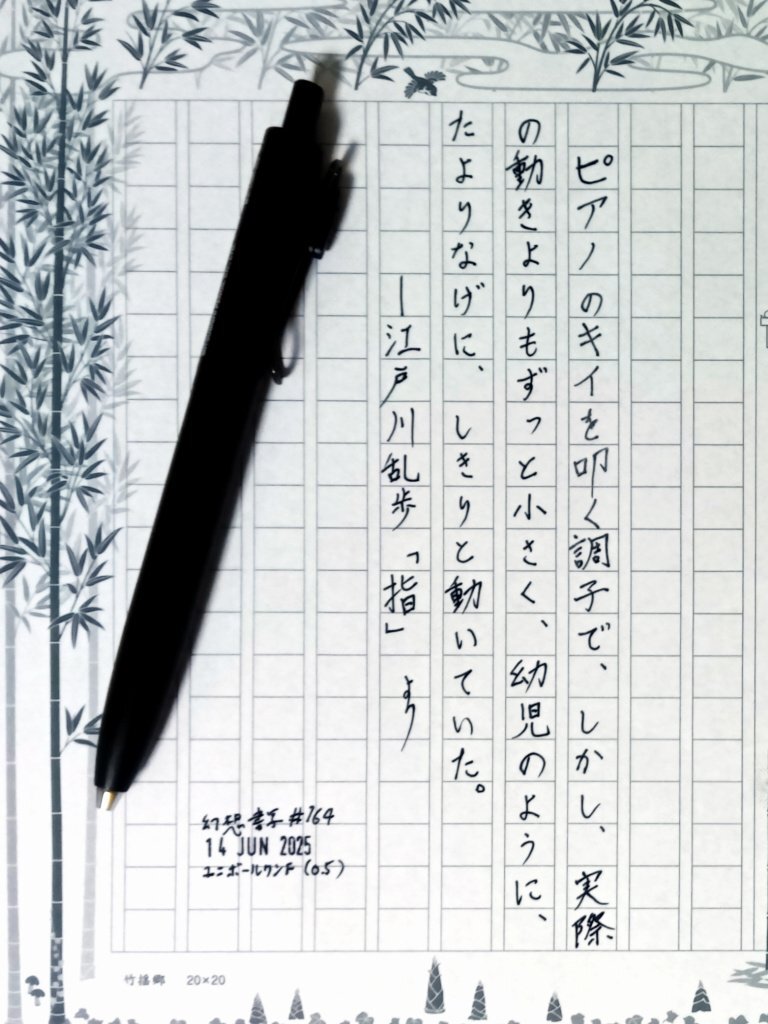 ピアノのキイを叩く調子で、しかし、実際
の動きよりもずっと小さく、幼児のように、
たよりなげに、しきりと動いていた。
―江戸川乱歩「指」より
幻想書写#164
14 JUN 2025
ユニボールワンF(0.5)
竹揺郷 20×20